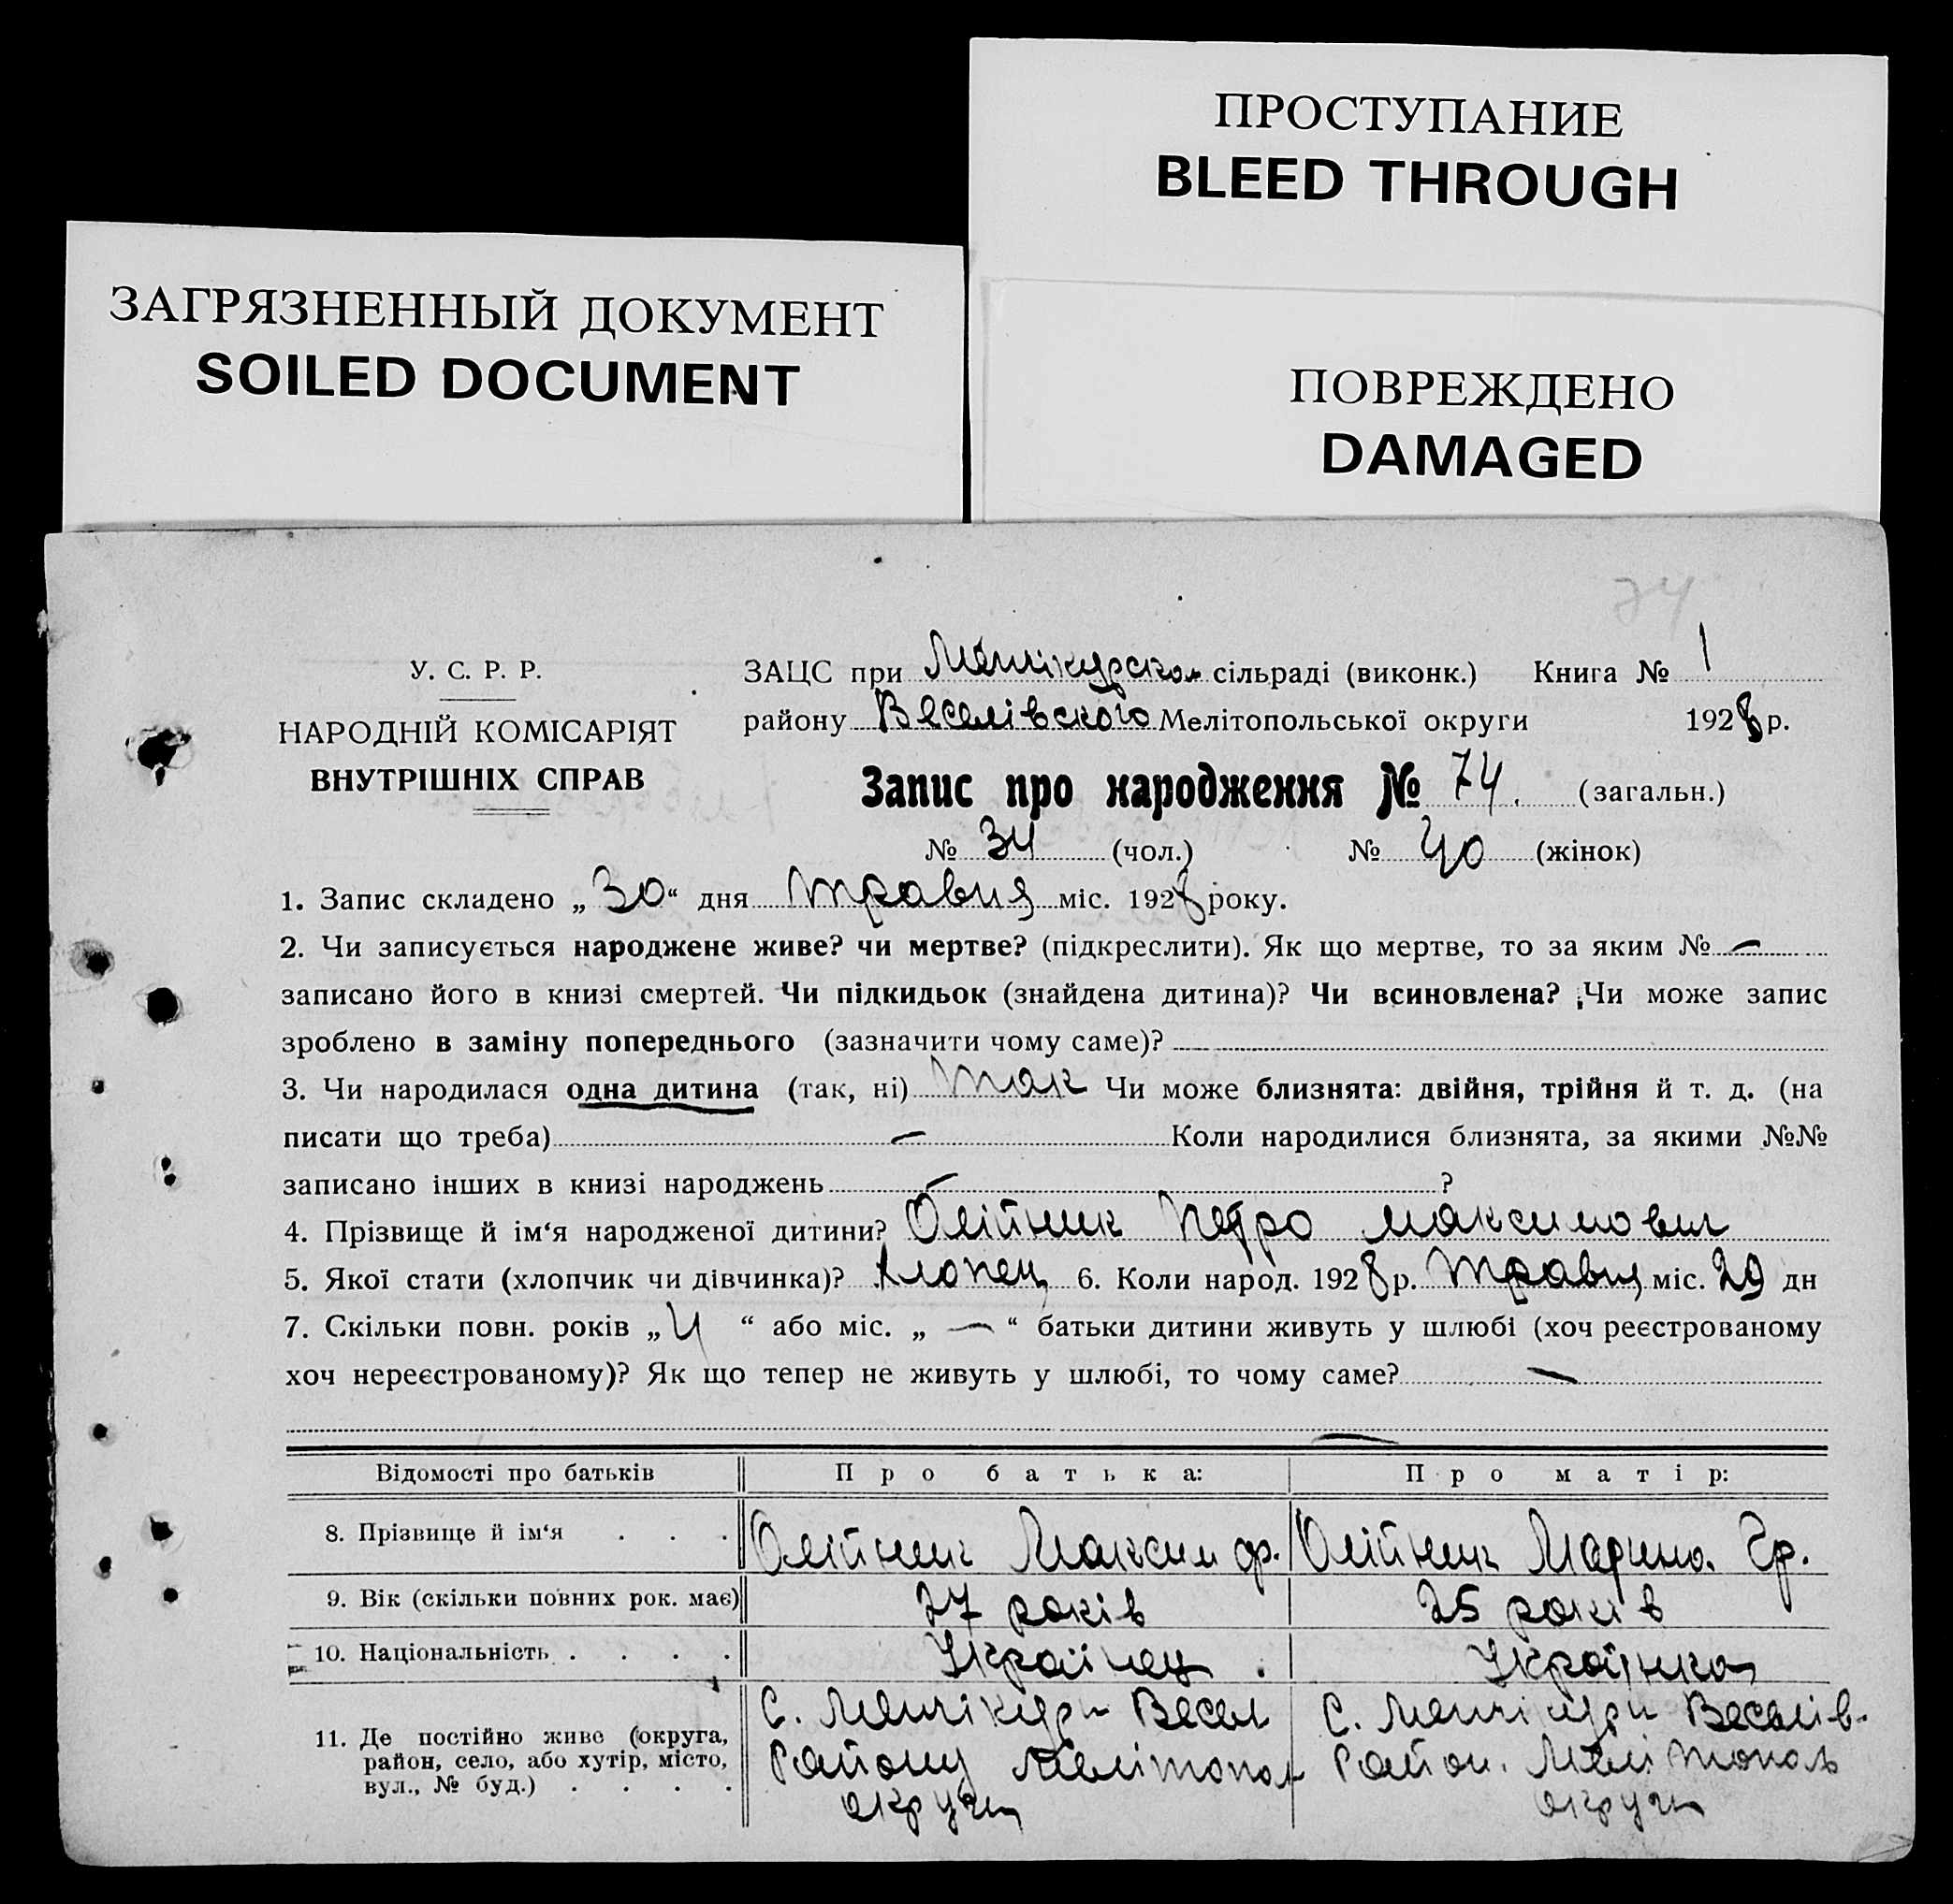 ПРОСТУПАНИЕ
BLEED THROUGH
ЗАГРЯЗНЕННЫЙ ДОКУМЕНТ
SOILED DOCUMENT
ПОВРЕЖДЕНО
DAMAGED
74
У. С. Р. Р.
НАРОДНІЙ КОМІСАРІЯТ
ВНУТРІШНІХ СПРАВ
ЗАЦС при Менчікурском сільраді (виконк.) Книга № 1
району Веселівского Мелітопольської округи 1928 р.
Запис про народження № 74. (загальн.)
№ 34 (чол.) № 40 (жінок)
1. Запис складено „ 30 “ дня травня міс. 1928 року.
2. Чи записується народжене живе? чи мертве? (підкреслити). Як що мертве, то за яким № —
записано його в книзі смертей. Чи підкидьок (знайдена дитина)? Чи всиновлена? Чи може запис
зроблено в заміну попереднього (зазначити чому саме)? —
3. Чи народилася одна дитина (так, ні) так Чи може близнята: двійня, трійня й т. д. (на
писати що треба) — Коли народилися близнята, за якими №№
записано інших в книзі народжень — ?
4. Прізвище й ім‘я народженої дитини? Олійник Петро Максимович
5. Якої стати (хлопчик чи дівчинка)? хлопец 6. Коли народ. 1928 р. травня міс. 29 дн
7. Скільки повн. років „ 4 “ або міс. „ — “ батьки дитини живуть у шлюбі (хоч реєстрованому
хоч нереєстрованому)? Як що тепер не живуть у шлюбі, то чому саме? —
—
Відомості про батьків Про батька: Про матір:
8. Прізвище й ім‘я . . . Олійник Максим Ф. Олійник Марина Гр.
9. Вік (скільки повних рок. має) 27 років 25 років
10. Національність . . . . Українец Українка
11. Де постійно живе (округа, район, село, або хутір, місто, вул., № буд.) . . . .
С. Менчікури Весел С. Менчікури Веселів.
Району Мелітопол Район. Мелітополь
округи округи